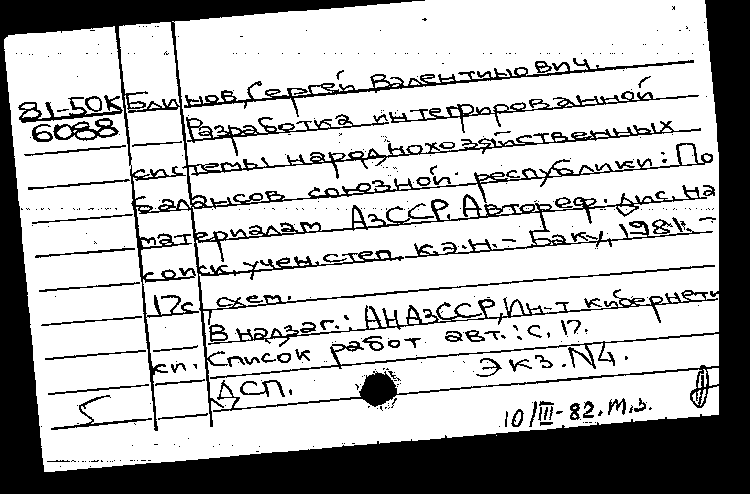 81-50К Блинов, Сергей Валентинович.
6088 Разработка интегрированной
системы народнохозяйственных
балансов союзной республики: По
материалам АзССР. Автореф. дис. на
соиск. учен. степ. к.э.н. - Баку, 1981. -
17с., схем.
В надзаг.: АНАзССР, Ин-т кибернети
сп. Список работ авт.: с. 17.
ДСП. Экз. N4.
5
10/III-82. м.з.